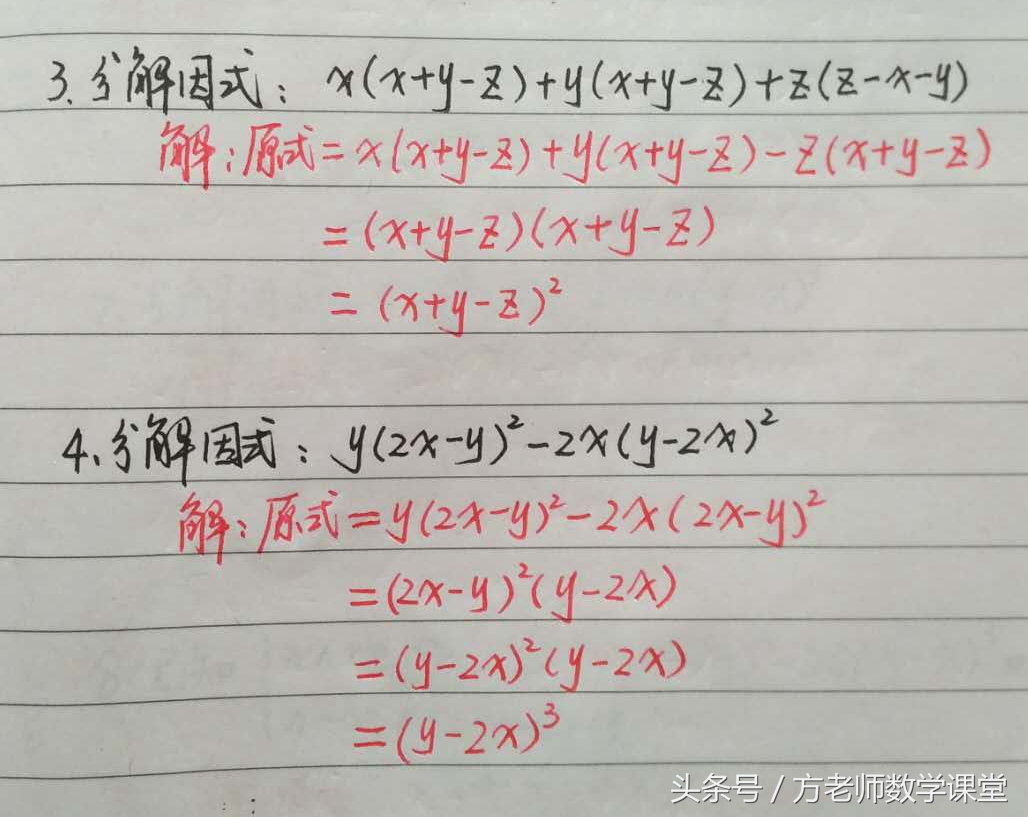 3. 分解因式：x(x+y-z)+y(x+y-z)+z(z-x-y)
解：原式=x(x+y-z)+y(x+y-z)-z(x+y-z)
=(x+y-z)(x+y-z)
=(x+y-z)²
4、分解因式：y(2x-y)²-2x(y-2x)²
解：原式=y(2x-y)²-2x(2x-y)²
=(2x-y)²(y-2x)
=(y-2x)²(y-2x)
=(y-2x)³
头条号 / 方老师数学课堂